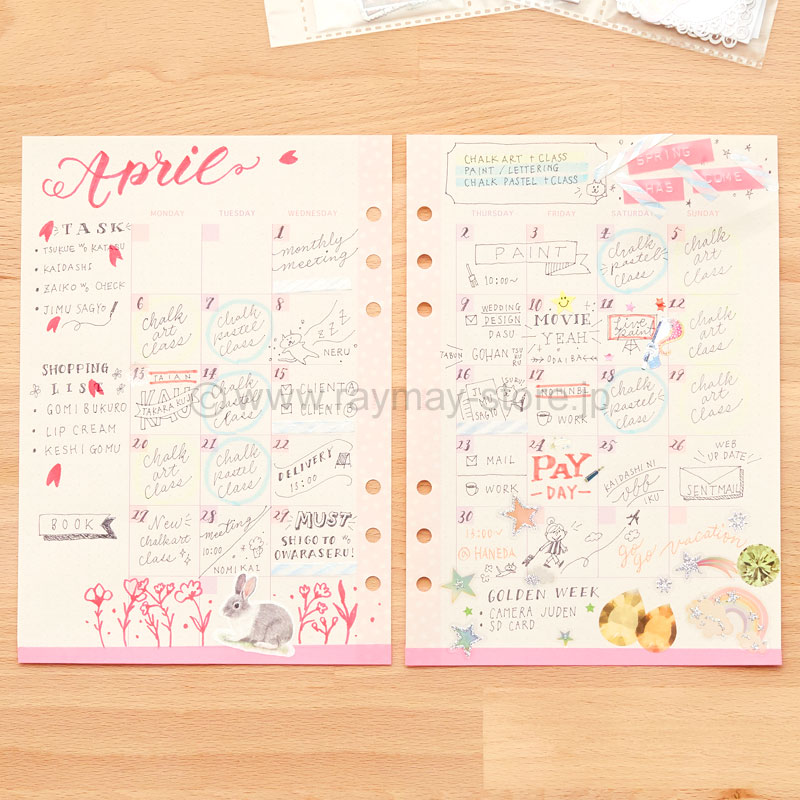 April
TASK
• TSUKUE no KATAGU
• KAIDASHI
• ZAIKO no CHECK
• JIMU SAGYO
SHOPPING
LIST
• GOMI BUKURO
• LIP CREAM
• KESHI GOMU
BOOK
MONDAY TUESDAY WEDNESDAY
1 monthly meeting
6 Chalk art class
7 Chalk pastel class
8 ZZZ NERU
13 TAIAN TAKARA KUJI
14 Chalk pastel class
15 CLIENT A CLIENT B
20 Chalk art class
21 Chalk pastel class
22 DELIVERY 13:00
27 New chalkart class
28 meeting 10:00 NOMIKAI
29 MUST SHIGOTO OWARASERU!
CHALK ART + CLASS
PAINT / LETTERING
CHALK PASTEL + CLASS
SPRING
HAS COME
THURSDAY FRIDAY SATURDAY SUNDAY
2 3 PAINT 10:00~
4 Chalk pastel class
5 Chalk art class
9 WEDDING DESIGN DASU
TABUN GOHAN TSUKURU
10 MOVIE YEAH ODAIBA
11 Live paint
12 Chalk art class
16 SAGYO
17 WORK
18 Chalk pastel class
19 Chalk art class
23 MAIL WORK
24 PAY -DAY-
25 KAIDASHI NI IKU
26 WEB UP DATE SENTMAIL
30 13:00~ @HANEDA
go go vacation
GOLDEN WEEK
• CAMERA JUDEN
• SD CARD
©www.raymay-store.jp